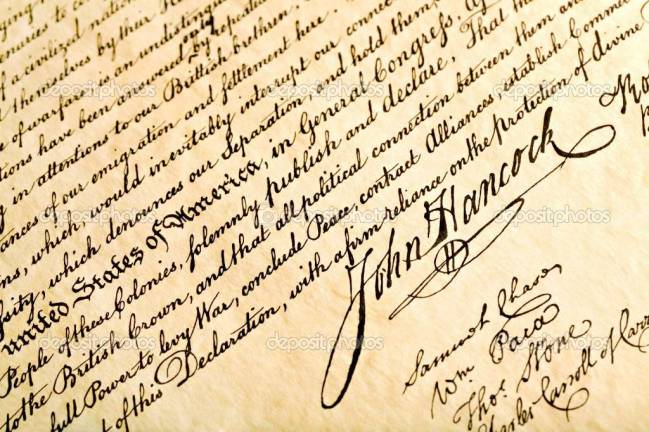 naries to com
of a civilized nation
themselves by their
of warfare, is an undistingu
tions have been answered by repeated
in attentions to our Brittish brethren
ances of our emigration and settlement here.
ns, which, would inevitably interrupt our connec
sity, which denounces our Separation, and hold them,
united States of America, in General Congress,
People of these Colonies, solemnly publish and declare, That
to the British Crown, and that all political connection between them and
full Power to levy War, conclude Peace, contract Alliances, establish Comme
of this Declaration, with a firm reliance on the protection of divine
John Hancock
Samuel Chase
Wm Paca
Thos Stone
Charles Carroll of Carr
depositphotos